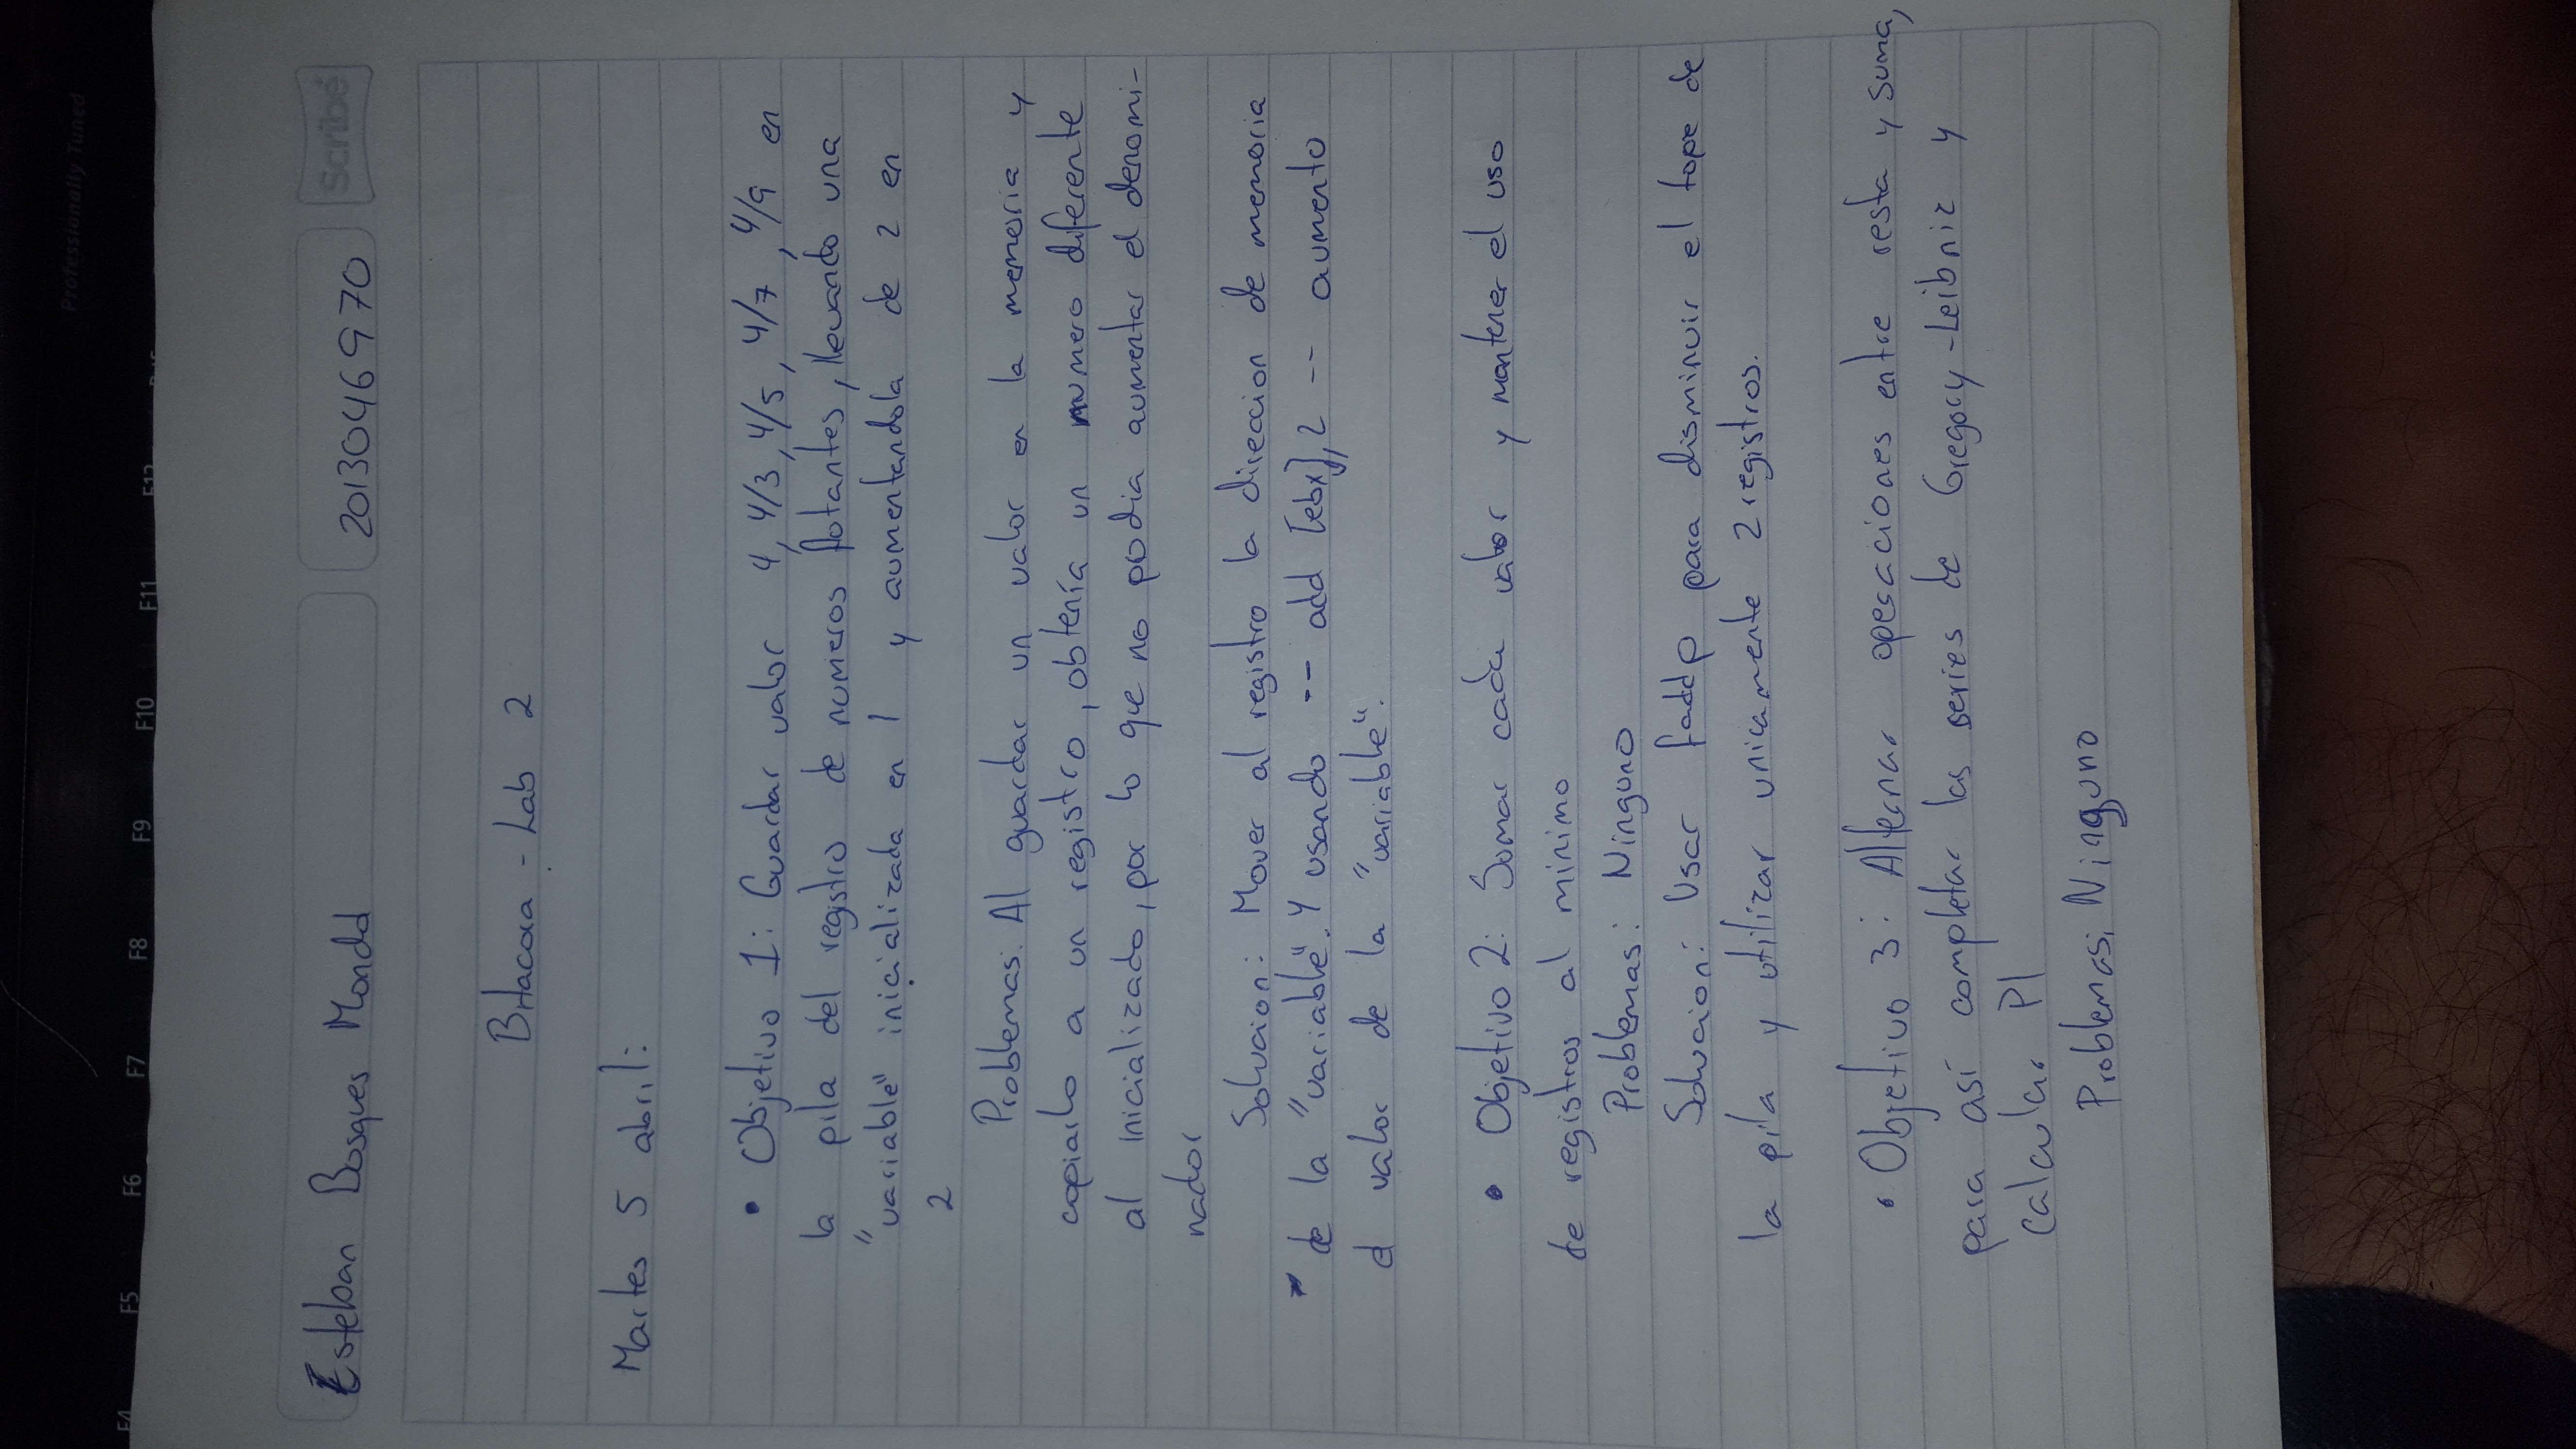 Professionally Tuned
F4 F5 F6 F7 F8 F9 F10 F11 F12
Esteban Bosques 2013046970 Scribe
Bitacora - Lab 2
Martes 5 abril:
• Objetivo 1: Guardar valor 4, 4/3, 4/5, 4/7, 4/9 en
la pila del registro de numeros flotantes, llevando una
"variable" inicializada en 1 y aumentandola de 2 en
2
Problemas: Al guardar un valor en la memoria y
copiarlo a un registro, obtenía un numero diferente
al inicializado, por lo que no podia aumentar el denomi-
nador
Solucion: Mover al registro la direccion de memoria
de la "variable". Y usando -- add [ebx], 2 -- aumento
el valor de la "variable".
• Objetivo 2: Sumar cada valor y mantener el uso
de registros al minimo
Problemas: Ninguno
Solucion: Usar faddp para disminuir el tope de
la pila y utilizar unicamente 2 registros.
• Objetivo 3: Alternar operaciones entre resta y suma,
para así completar las series de Gregory-Leibniz y
calcular PI
Problemas: Ninguno